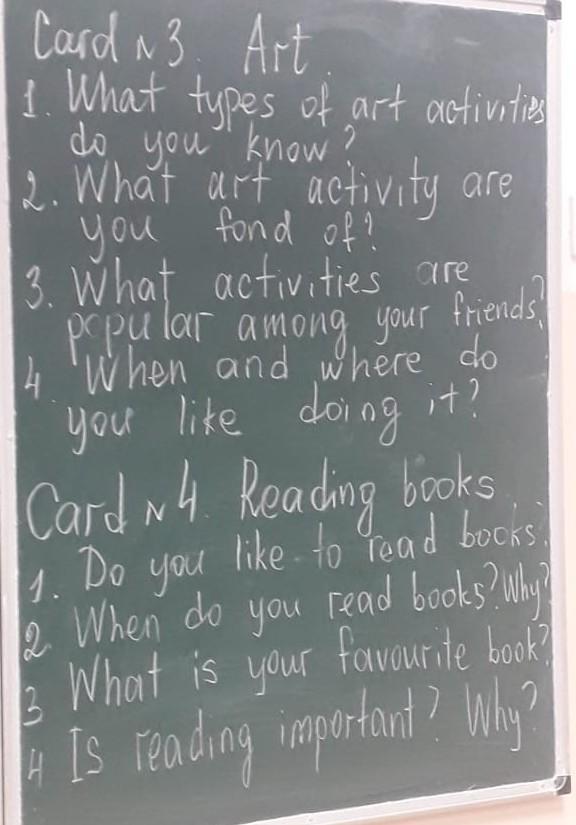 Card N 3. Art.
1. What types of art activities
do you know?
2. What art activity are
you fond of?
3. What activities are
popular among your friends?
4 When and where do
you like doing it?
Card N 4. Reading books
1. Do you like to read books?
2. When do you read books? Why?
3 What is your favourite book?
4 Is reading important? Why?